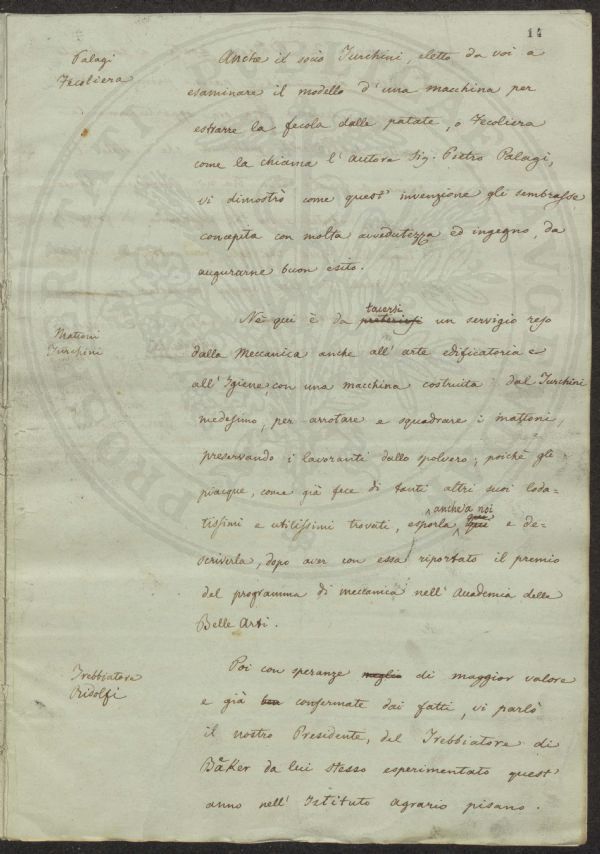 14
Palagi
Fecoliera
Anche il socio Turchini, eletto da voi a
esaminare il modello d'una macchina per
estrarre la fecola dalle patate, o Fecoliera
come la chiama l'Autore Sig. Pietro Palagi,
vi dimostrò come quest'invenzione gli sembrasse
concepita con molta avvedutezza ed ingegno, da
augurarne buon esito.
Mattoni
Turchini
Nè qui è da preterirsi tacersi un servigio reso
dalla Meccanica anche all'arte edificatoria e
all'Igiene, con una macchina costruita dal Turchini
medesimo, per arrotare e squadrare i mattoni,
preservando i lavoranti dallo spolvero; poichè gli
piacque, come già fece di tanti altri suoi loda-
tissimi e utilissimi trovati, esporla anche a noi e de-
scriverla, dopo aver con essa riportato il premio
del programma di meccanica nell'Accademia delle
Belle Arti.
Trebbiatore
Ridolfi
Poi con speranze meglio di maggior valore
e già ben confermate dai fatti, vi parlò
il nostro Presidente, del Trebbiatore di
Baker da lui stesso esperimentato quest'
anno nell'Istituto agrario pisano.